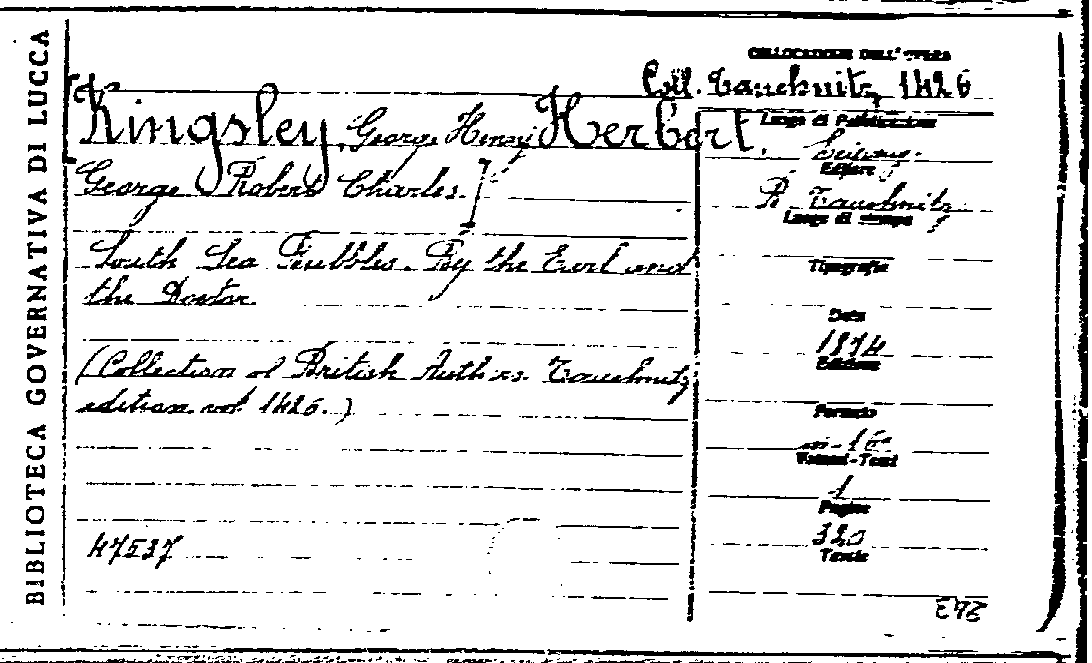 BIBLIOTECA GOVERNATIVA DI LUCCA
COLLOCAZIONE DELL'OPERA
Coll. Tauchnitz, 1426
[Kingsley, George Henry Herbert,
George Robert Charles.]
South Sea Bubbles. By the Earl and
the Doctor.
(Collection of British Authors. Tauchnitz
edition. vol. 1426.)
47537
Luogo di Pubblicazione
Editore
B. Tauchnitz
Luogo di stampa
Tipografia
Data
1874
Edizione
Formato
in-16°
Volumi-Tomi
1
Pagine
320
Tavole